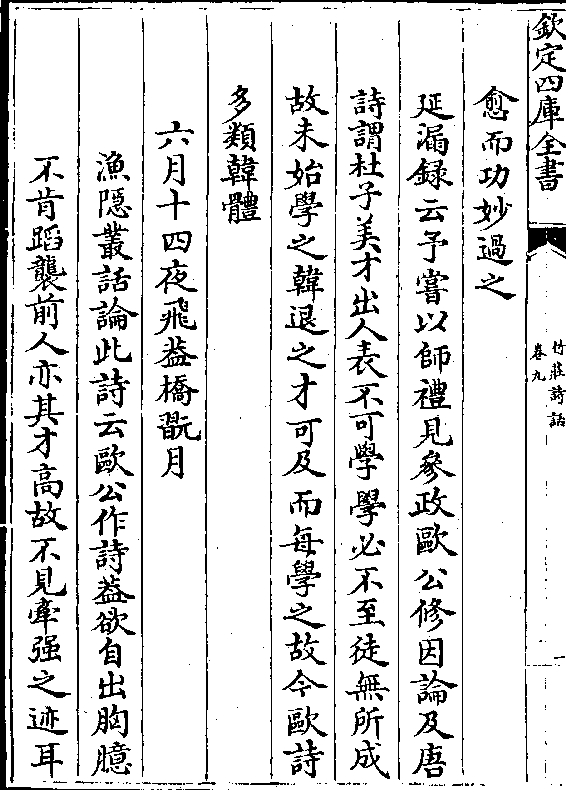 欽定四庫全書
竹莊詩話
卷九
愈而功妙過之
延漏録云予嘗以師禮見參政歐公修因論及唐
詩謂杜子美才出人表不可學學必不至徒無所成
故未始學之韓退之才可及而每學之故今歐詩
多類韓體
六月十四夜飛葢橋翫月
漁隠叢話論此詩云歐公作詩葢欲自出胸臆
不肯蹈襲前人亦其才高故不見牽强之迹耳